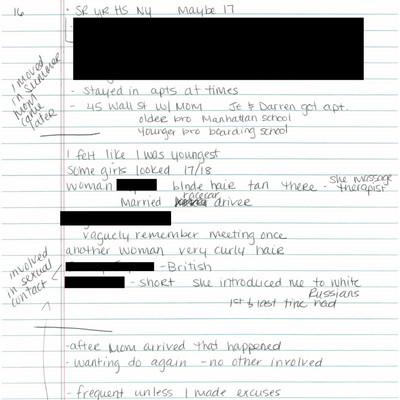 16
SR yr HS NY Maybe 17
I moved
in summer
Mom
came
later
- stayed in apts at times
- 45 Wall St w/ MOM JE & Darren got apt.
older bro Manhattan school
younger bro boarding school
I felt like I was youngest
some girls looked 17/18
woman blnde hair tan there - she massage
therapist
Married racecar driver
vaguely remember meeting once
another woman very curly hair
involved
in sexual
contact
- British
- short she introduced me to white
Russians
1st & last time had
- after Mom arrived that happened
- wanting do again - no other involved
- frequent unless I made excuses